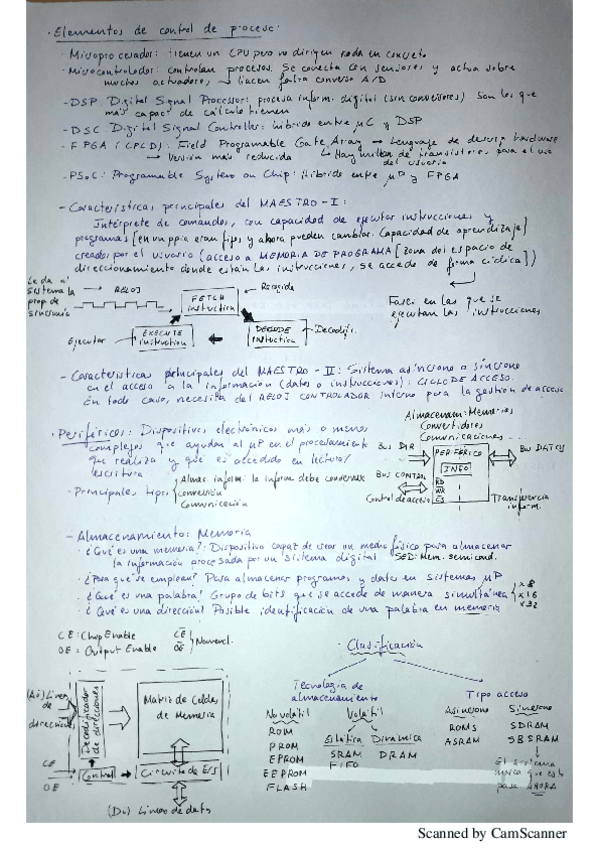 · Elementos de control de proceso:
· Microprocesador: tienen un CPU pero no dirigen nada en concreto
· Microcontrolador: controlan procesos. Se conecta con sensores y actua sobre
muchos actuadores, → hacen falta convers A/D
- DSP Digital Signal Processor: procesa inform. digital (sin conversores) Son los que
más capac de cálculo tienen
- DSC Digital Signal Controller: híbrido entre μC y DSP
- FPGA (CPLD): Field Programable Gate Array → Lenguaje de descrip hardware
→ Versión más reducida
↳ Hay miles de transistores para el uso
del usuario
- PSoC: Programable System on Chip: Híbrido entre μP y FPGA
- Características principales del MAESTRO - I:
Intérprete de comandos, con capacidad de ejecutar instrucciones y
programas [en un ppio eran fijos y ahora pueden cambiar. Capacidad de aprendizaje]
creados por el usuario (acceso a MEMORIA DE PROGRAMA [zona del espacio de
direccionamiento donde están las instrucciones, se accede de forma cíclica])
Le da al
sistema la
prop de
sincronía
→ RELOJ
FETCH
instruction
→ Recogida
EXECUTE
instruction
DECODE
instruction
→ Decodific.
Ejecutar
Fases en las que se
ejecutan las instrucciones
- Características principales del MAESTRO - II: Sistema asíncrono o síncrono
en el acceso a la información (datos o instrucciones): CICLO DE ACCESO.
En todo caso, necesita del RELOJ CONTROLADOR interno para la gestión de acceso
· Periféricos: Dispositivos electrónicos más o menos
complejos que ayudan al μP en el procesamiento
que realiza y que es accedido en lectura/
escritura
· Principales tipos
Almac. inform: la inform debe conservarse
Conversión
Comunicación
Almacenam: Memorias
Convertidores
Comunicaciones ...
Bus DIR
PERIFÉRICO
INFO
Bus DATOS
Bus CONTROL
RD
WR
CS
Control de acceso
Transferencia
inform.
- Almacenamiento: Memoria
· ¿Qué es una memoria?: Dispositivo capaz de crear un medio físico para almacenar
la información procesada por un sistema digital SED: Mem. semicond.
· ¿Para qué se emplean? Para almacenar programas y datos en sistemas μP
· ¿Qué es una palabra? Grupo de bits que se accede de manera simultánea
x8
x16
x32
· ¿Qué es una dirección? Posible identificación de una palabra en memoria
CE: Chip Enable
OE: Output Enable
CE
OE
Nomencl.
(Ai) Líneas
de
direcciones
Decodificador
de direcciones
Matriz de Celdas
de Memoria
CE
OE
Control
Circuito de E/S
(Di) Líneas de datos
· Clasificación
Tecnología de
almacenamiento
Tipo acceso
No volátil
ROM
PROM
EPROM
EEPROM
FLASH
Volátil
Estática
SRAM
FIFO
Dinámica
DRAM
Asíncrono
ROMs
ASRAM
Síncrono
SDRAM
SBSRAM
El sistema
para AHORA
Scanned by CamScanner